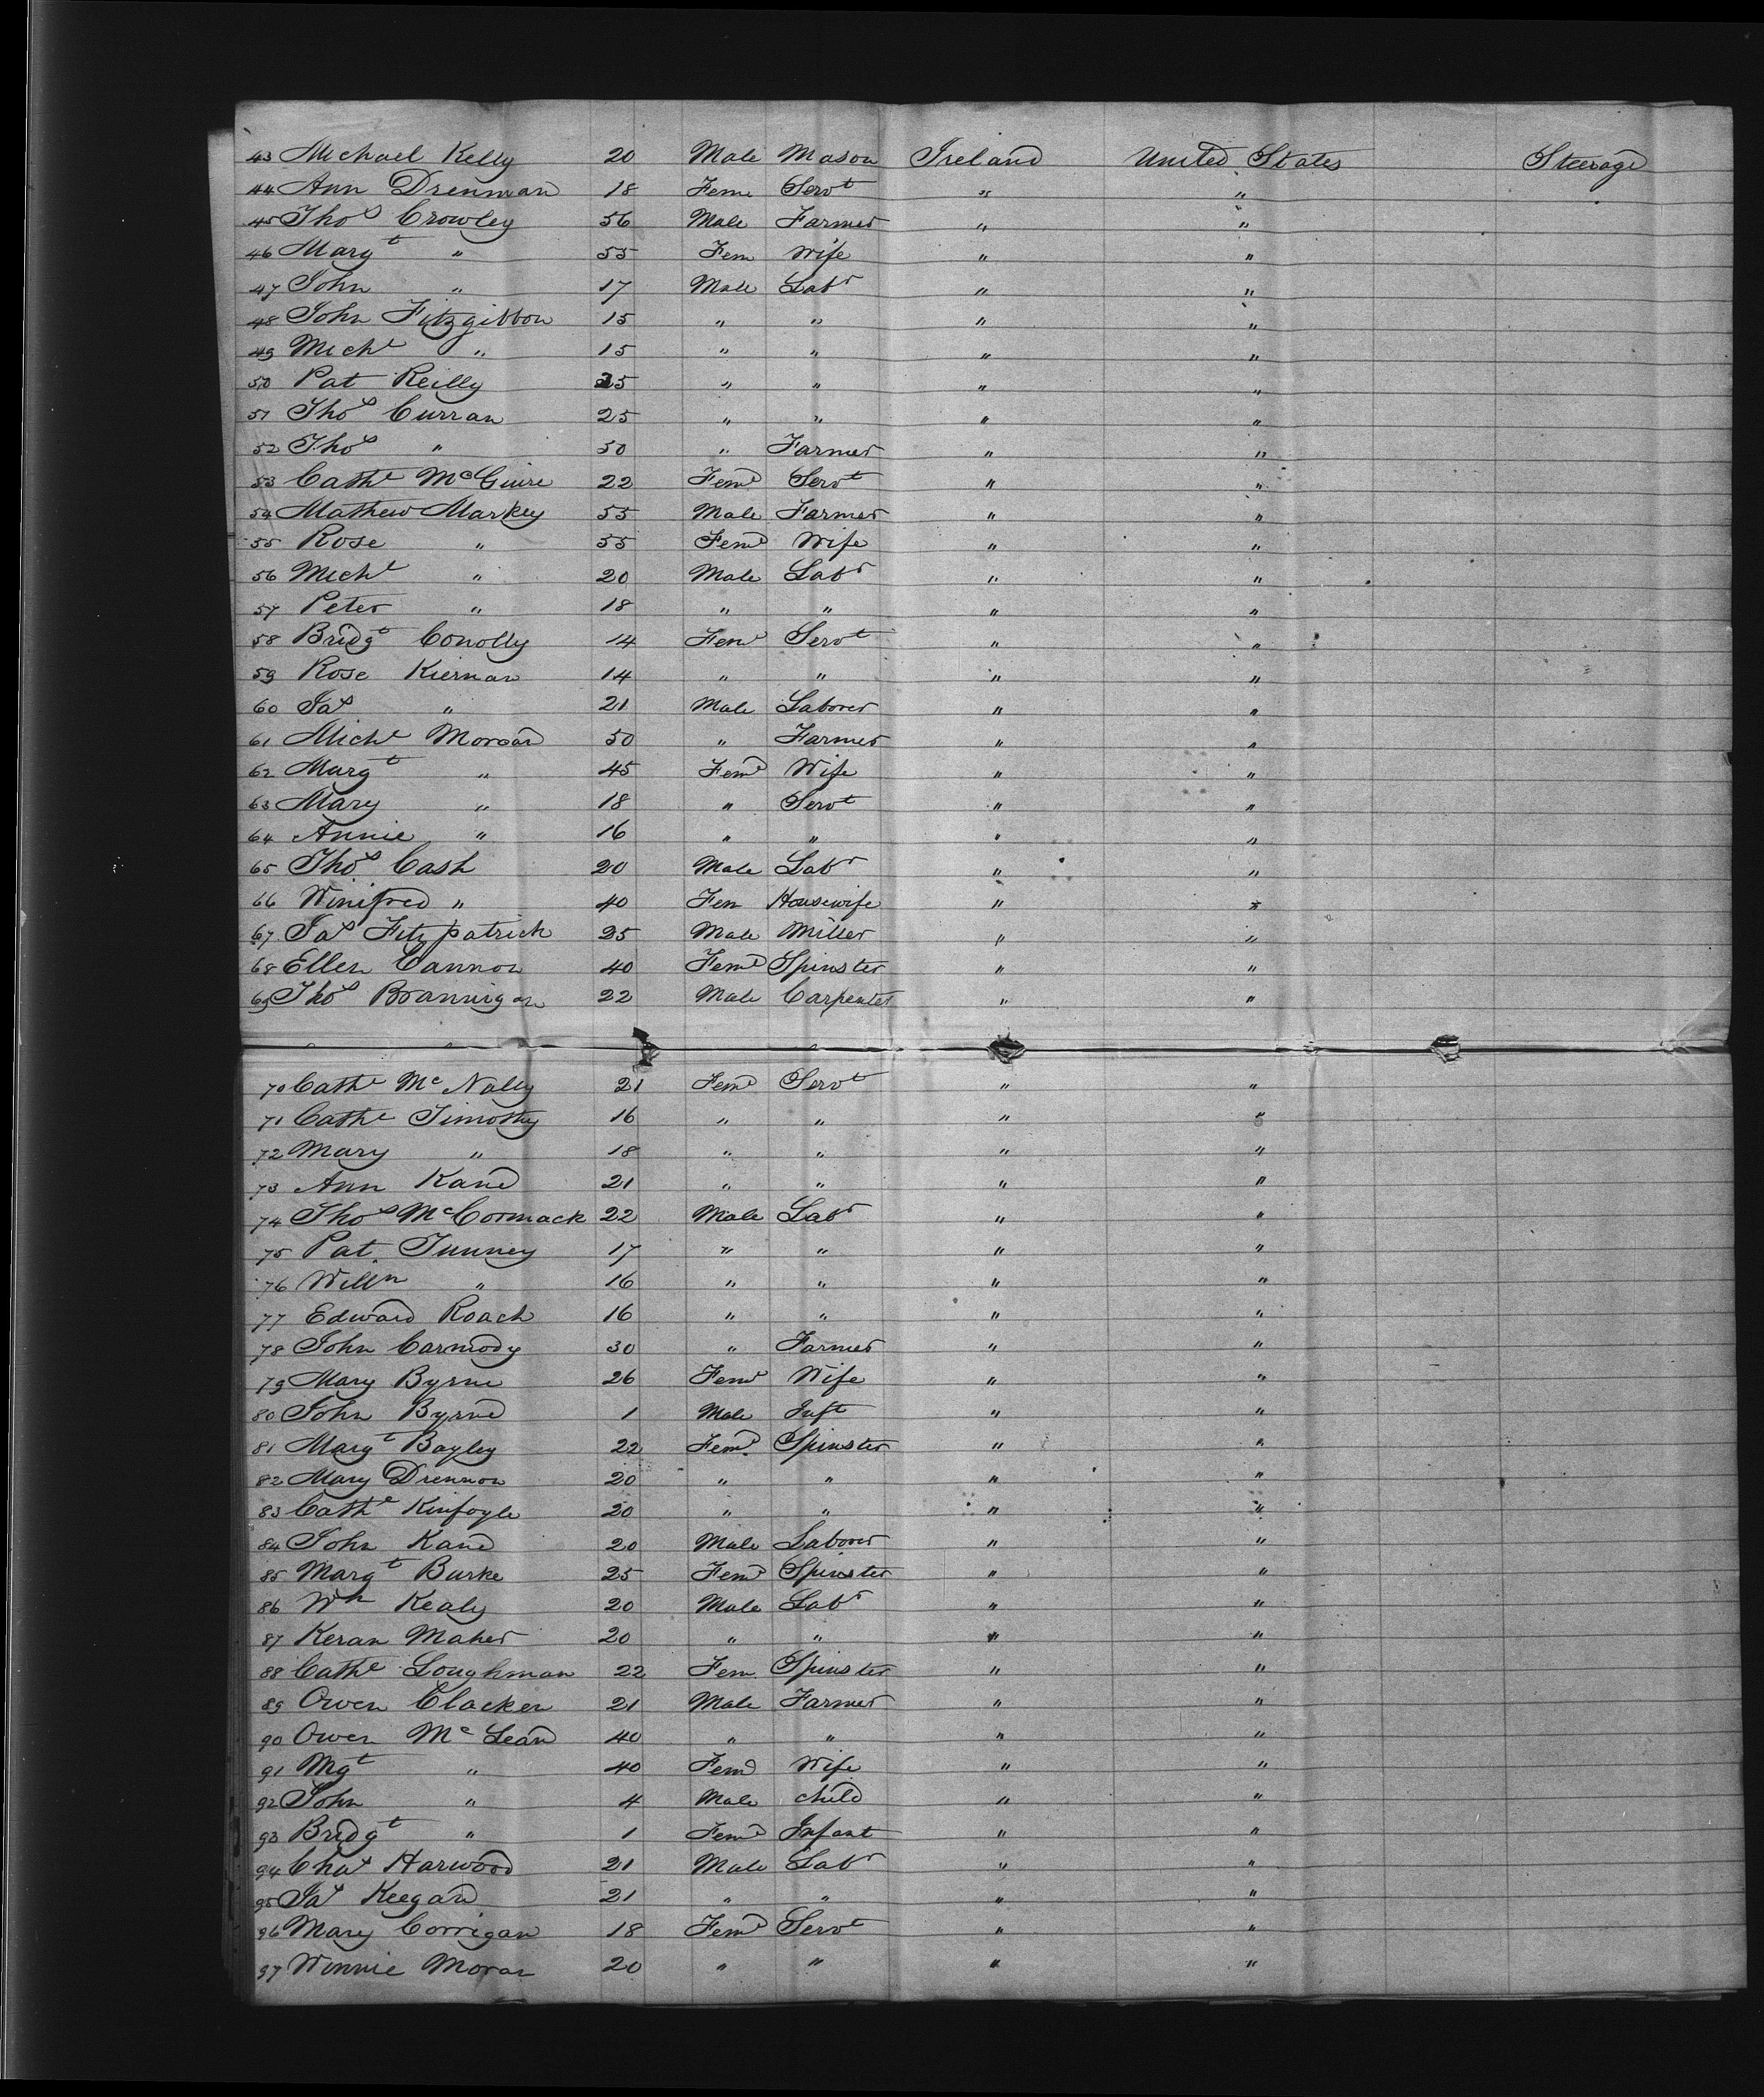 43 Michael Kelly 20 Male Mason Ireland United States Steerage
44 Ann Drennan 18 Fem Servt " "
45 Thos Crowley 56 Male Farmer " "
46 Margt " 55 Fem Wife " "
47 John " 17 Male Labr " "
48 John Fitzgibbon 15 " " " "
49 Michl " 15 " " " "
50 Pat Reilly 25 " " " "
51 Thos Curran 25 " " " "
52 Thos " 50 " Farmer " "
53 Cathe McGuire 22 Feme Servt " "
54 Mathew Markey 55 Male Farmer " "
55 Rose " 55 Feme Wife " "
56 Michl " 20 Male Labr " "
57 Peter " 18 " " " "
58 Bridgt Conolly 14 Feme Servt " "
59 Rose Kiernan 14 " " " "
60 Jas " 21 Male Laborer " "
61 Michl Moroan 50 " Farmer " "
62 Margt " 45 Feme Wife " "
63 Mary " 18 " Servt " "
64 Annie " 16 " " " "
65 Thos Cash 20 Male Labr " "
66 Winifred " 40 Fem Housewife " "
67 Jas Fitzpatrick 25 Male Miller " "
68 Ellen Cannon 40 Feme Spinster " "
69 Thos Brannigan 22 Male Carpenter " "
70 Cathe McNally 21 Feme Servt " "
71 Cathe Timothy 16 " " " "
72 Mary " 18 " " " "
73 Ann Kane 21 " " " "
74 Thos McCormack 22 Male Labr " "
75 Pat Tunney 17 " " " "
76 Willm " 16 " " " "
77 Edward Roach 16 " " " "
78 John Carmody 30 " Farmer " "
79 Mary Byrne 26 Feme Wife " "
80 John Byrne 1 Male Inft " "
81 Margt Bayley 22 Feme Spinster " "
82 Mary Drennon 20 " " " "
83 Cathe Kinfoyle 20 " " " "
84 John Kane 20 Male Laborer " "
85 Margt Burke 25 Feme Spinster " "
86 Wm Kealy 20 Male Labr " "
87 Keran Maher 20 " " " "
88 Cathe Loughman 22 Fem Spinster " "
89 Owen Clacken 21 Male Farmer " "
90 Owen McLean 40 " " " "
91 Mgt " 40 Feme Wife " "
92 John " 4 Male child " "
93 Bridgt " 1 Feme Infant " "
94 Chas Harwood 21 Male Labr " "
95 Jas Keegan 21 " " " "
96 Mary Corrigan 18 Feme Servt " "
97 Winnie Moran 20 " " " "